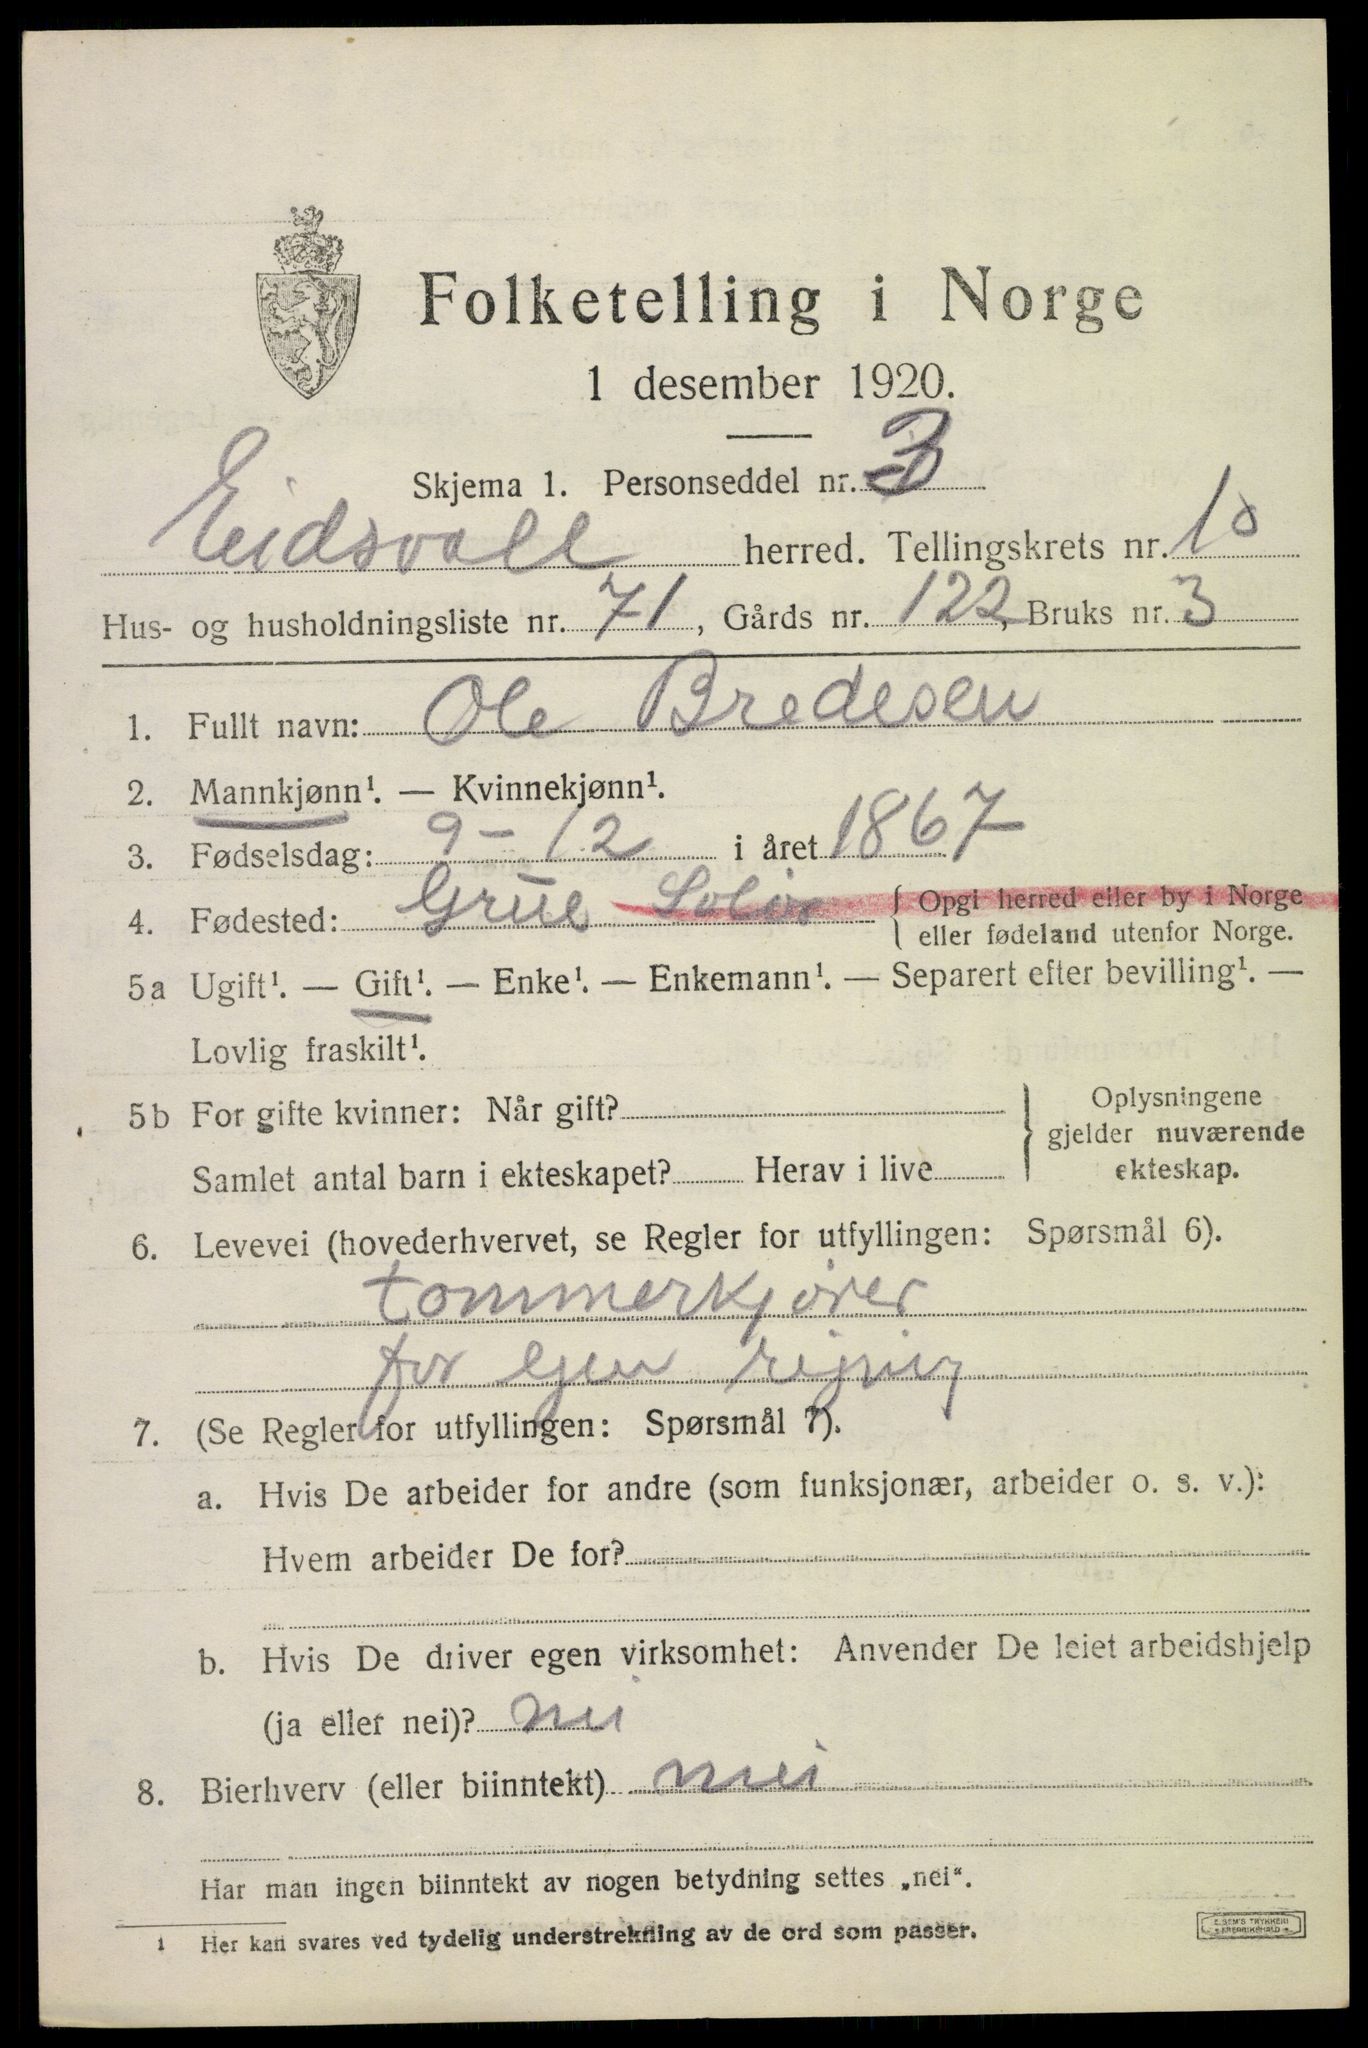 Folketelling i Norge
1 desember 1920.
Skjema 1. Personseddel nr. 3
Eidsvoll herred. Tellingskrets nr. 10
Hus- og husholdningsliste nr. 71, Gårds nr. 122, Bruks nr. 3
1. Fullt navn: Ole Bredesen
2. Mannkjønn¹. — Kvinnekjønn¹.
3. Fødselsdag: 9-12 i året 1867
4. Fødested: Grue Solør { Opgi herred eller by i Norge
eller fødeland utenfor Norge.
5a Ugift¹. — Gift¹. — Enke¹. — Enkemann¹. — Separert efter bevilling¹. —
Lovlig fraskilt¹.
5b For gifte kvinner: Når gift? } Oplysningene
gjelder nuværende
Samlet antal barn i ekteskapet? Herav i live ekteskap.
6. Levevei (hovederhvervet, se Regler for utfyllingen: Spørsmål 6).
tømmerkjører
for egen regning
7. (Se Regler for utfyllingen: Spørsmål 7).
a. Hvis De arbeider for andre (som funksjonær, arbeider o. s. v.):
Hvem arbeider De for?
b. Hvis De driver egen virksomhet: Anvender De leiet arbeidshjelp
(ja eller nei)? nei
8. Bierhverv (eller biinntekt) nei
Har man ingen biinntekt av nogen betydning settes „nei“.
1 Her kan svares ved tydelig understrekning av de ord som passer.
E. SEM'S TRYKKERI
FREDRIKSHALD